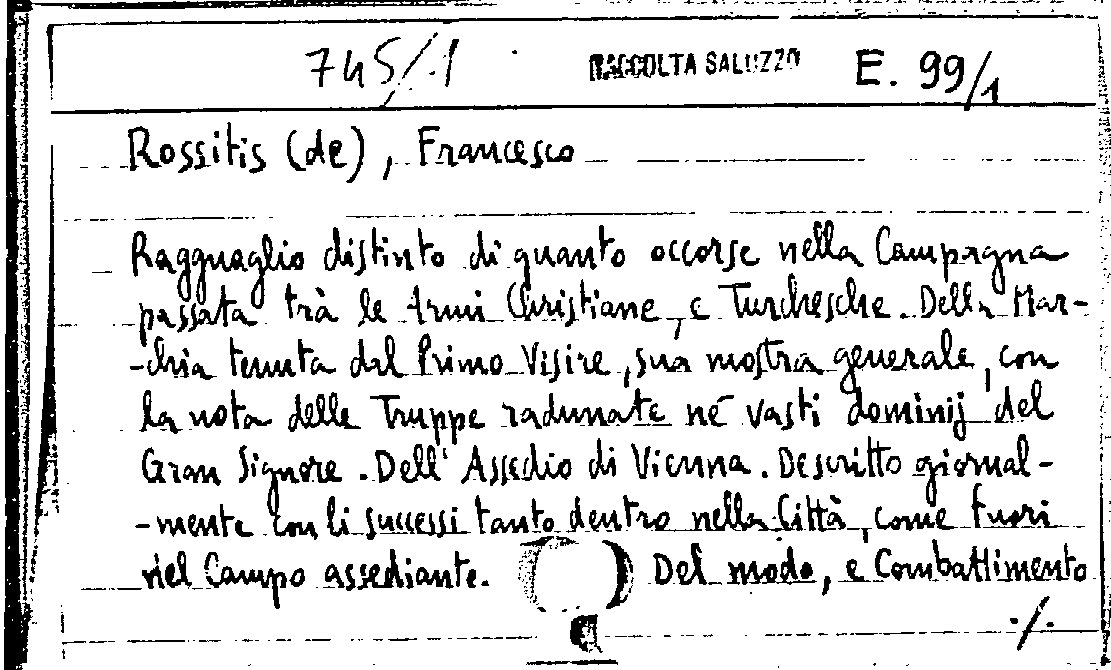 745/1 RACCOLTA SALUZZO E. 99/1
Rossitis (de), Francesco
Ragguaglio distinto di quanto occorse nella Campagna
passata trà le Armi Christiane, e Turchesche. Della Mar-
-chia tenuta dal Primo Visire, sua mostra generale, con
la nota delle Truppe radunate né vasti dominij del
Gran Signore. Dell'Assedio di Vienna. Descritto giornal-
-mente con li successi tanto dentro nella Città, come fuori
nel Campo assediante. Del modo, e Combattimento
./.